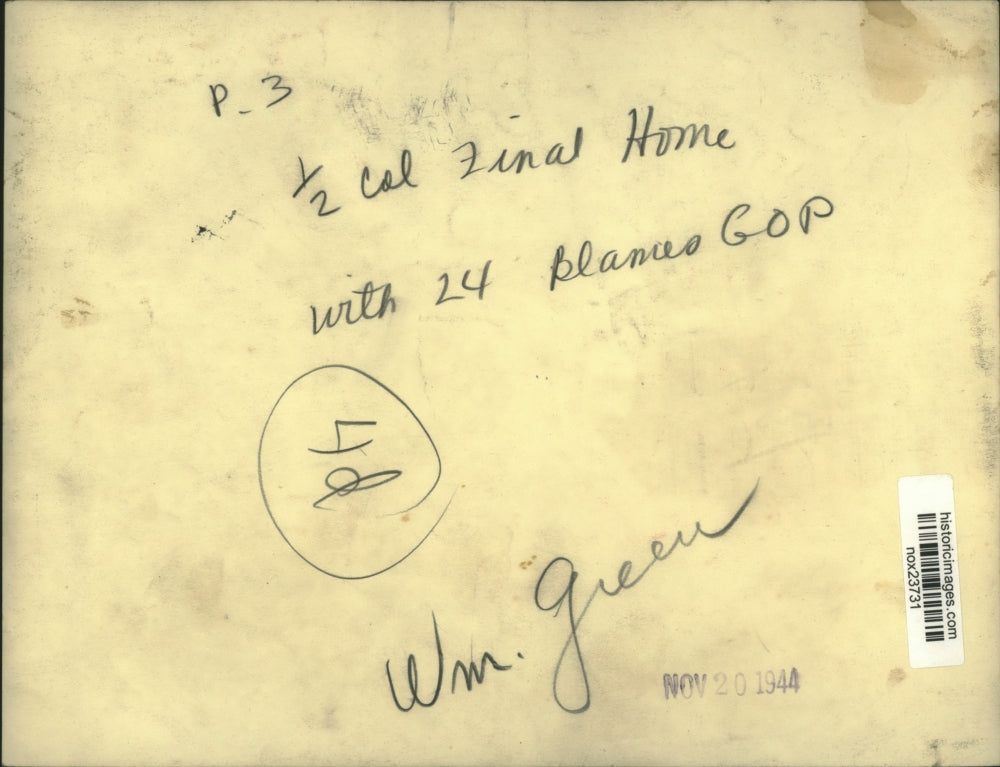 P. 3
1/2 Col Final Home
with 24 Blames GOP
48
Wm. Green
NOV 20 1944
historicimages.com
nox23731